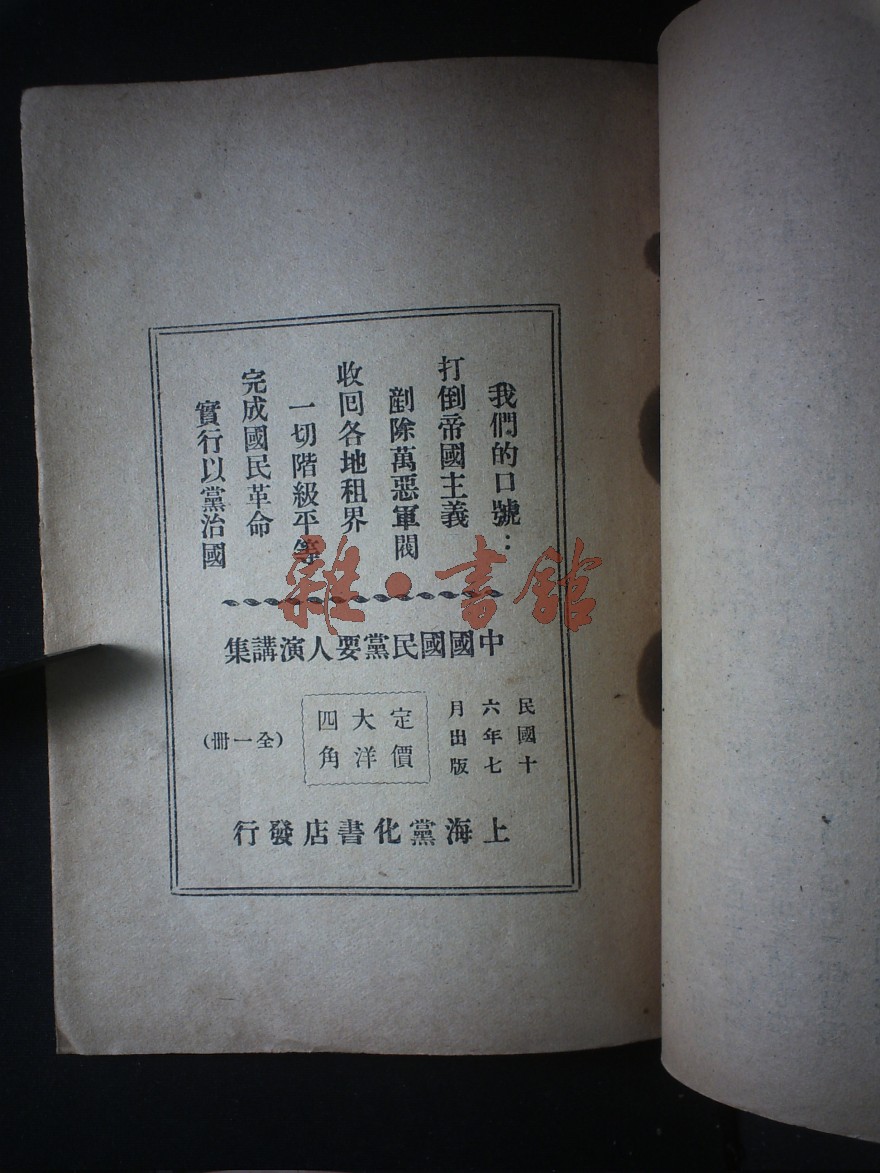 我們的口號：
打倒帝國主義
剷除萬惡軍閥
收回各地租界
一切階級平等
完成國民革命
實行以黨治國
雜・書館
中國國民黨要人演講集
民國十
六年七
月出版
定價
大洋
四角
（全一冊）
上海黨化書店發行